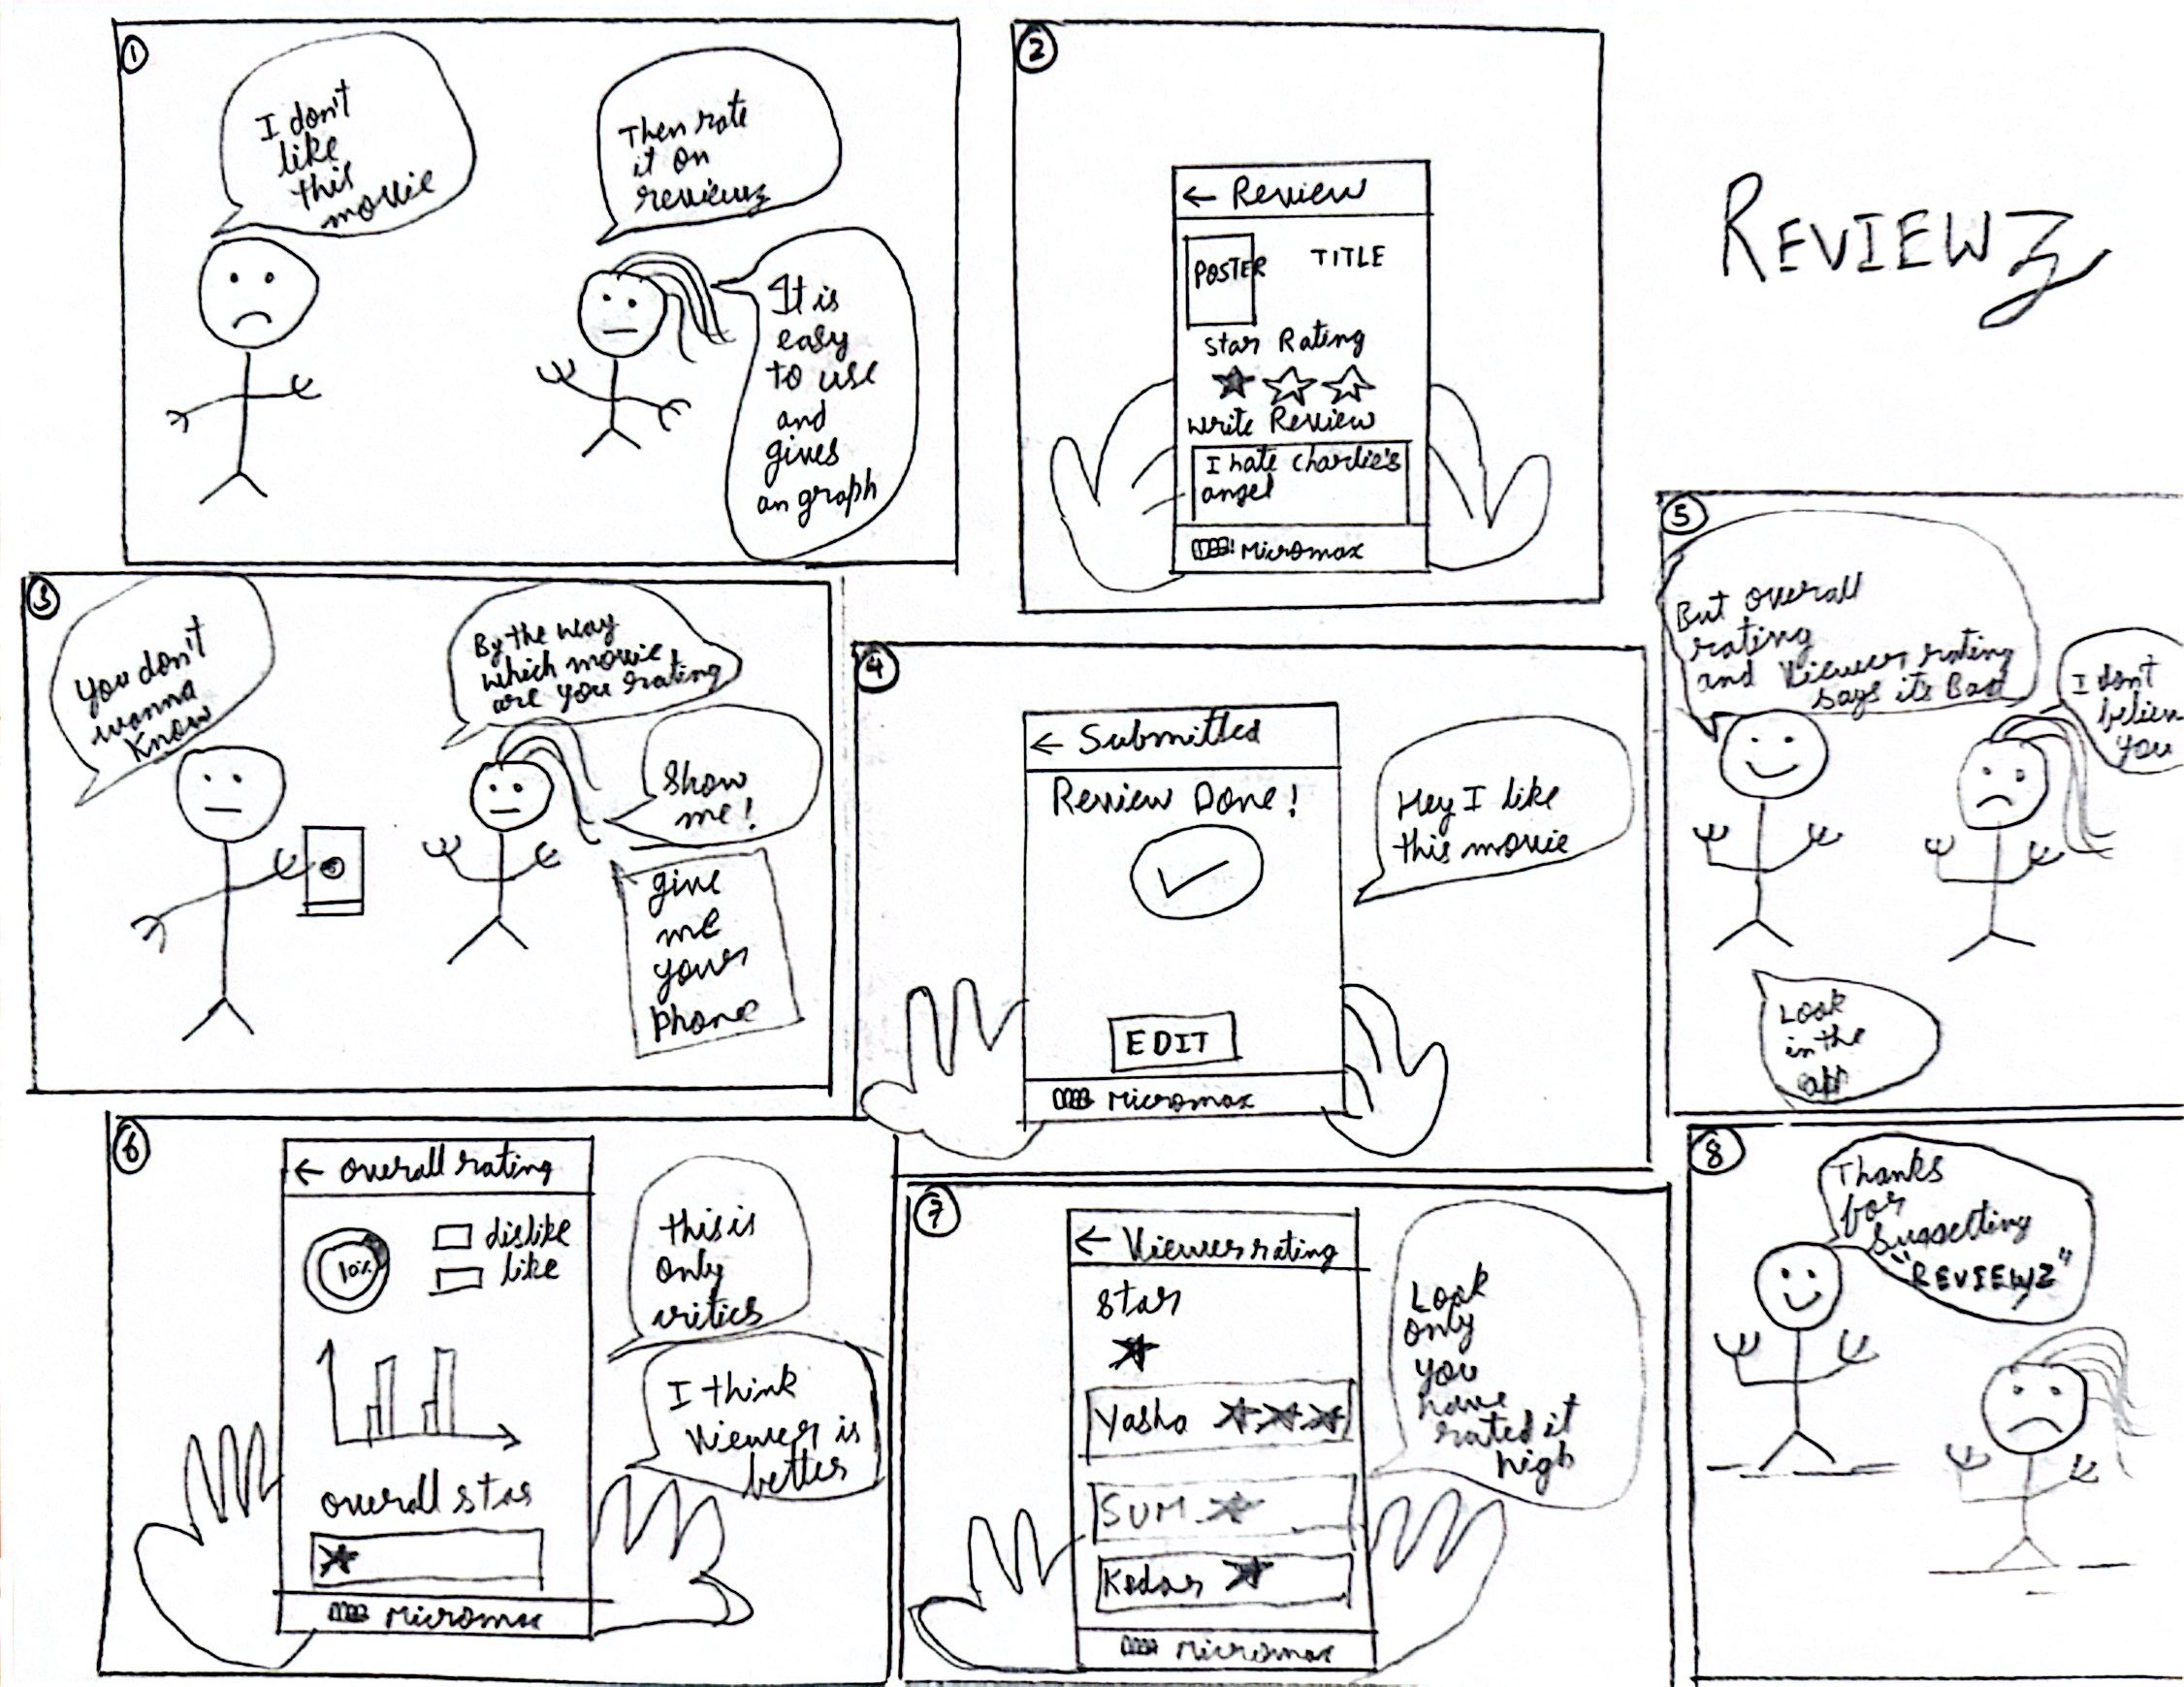 1
I don't
like
this
movie
Then rate
it on
reviewz
It is
easy
to use
and
gives
an graph
2
← Review
POSTER
TITLE
Star Rating
Write Review
I hate Charlie's
angel
Micromax
REVIEWZ
3
You don't
wanna
know
By the way
which movie
are you rating
Show
me!
give
me
your
phone
4
← Submitted
Review Done!
EDIT
Micromax
Hey I like
this movie
5
But overall
rating
and Viewer rating
says its Bad
I don't
believ
you
Look
in the
app
6
← Overall rating
10%
dislike
like
overall star
Micromax
this is
only
critics
I think
Viewer is
better
7
← Viewer rating
Star
Yasho
SUM
Kedar
Micromax
Look
only
you
have
rated it
high
8
Thanks
for
"REVIEWZ"